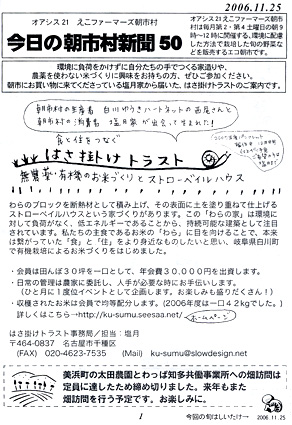 2006.11.25
オアシス21 えこファーマーズ朝市村
今日の朝市村新聞50
オアシス21えこファーマーズ朝市
村は毎月第2・第4土曜日の朝9
時〜12時に開催する、環境に配慮
した方法で栽培した旬の野菜な
どを販売するエコ朝市です。
環境に負荷をかけずに自分たちの手でつくる家造りや、
農薬を使わない米づくりに興味をお持ちの方、ぜひご参加ください。
朝市にお買い物に来てくださっている塩月家から届いた、はさ掛けトラストのご案内です。
朝市村の生産者 白川ゆうきハートネットの西尾さんと
朝市村の消費者 塩月家が出会って生まれた!
食と住をつなぐ
はさ掛けトラスト
無農薬・有機のお米づくりとストローベイルハウス
わらのブロックを断熱材として積み上げ、その表面に土を塗り重ねて仕上げる
ストローベイルハウスという家づくりがあります。この「わらの家」は環境に
対して負荷がなく、低エネルギーであることから、持続可能な建築として注目
されています。私たちの主食であるお米の「わら」に目を向けることで、本来
は繋がっていた「食」と「住」をより身近なものしたいと思い、岐阜県白川町
で有機栽培によるお米づくりをはじめました。
・会員は田んぼ30坪を一口として、年会費30,000円を出資します。
・日常の管理は農家に委託し、人手が必要な時にお手伝いします。
(ひと月に1度位イベントとして企画します。お楽しみも盛りだくさん!)
・収穫されたお米は会員で均等配分します。(2006年度は一口42kgでした。)
詳しくはこちら→http://ku-sumu.seesaa.net/ ホームページ
はさ掛けトラスト事務局/担当:塩月
〒464-0837 名古屋市千種区
(FAX) 020-4623-7535 (Mail) ku-sumu@slowdesign.net
美浜町の太田農園とわっぱ知多共働事業所への畑訪問は
定員に達したため締め切りました。来年もまた
畑訪問を行う予定です。お楽しみに。
1
今回の旬はしいたけ→
2006.11.25